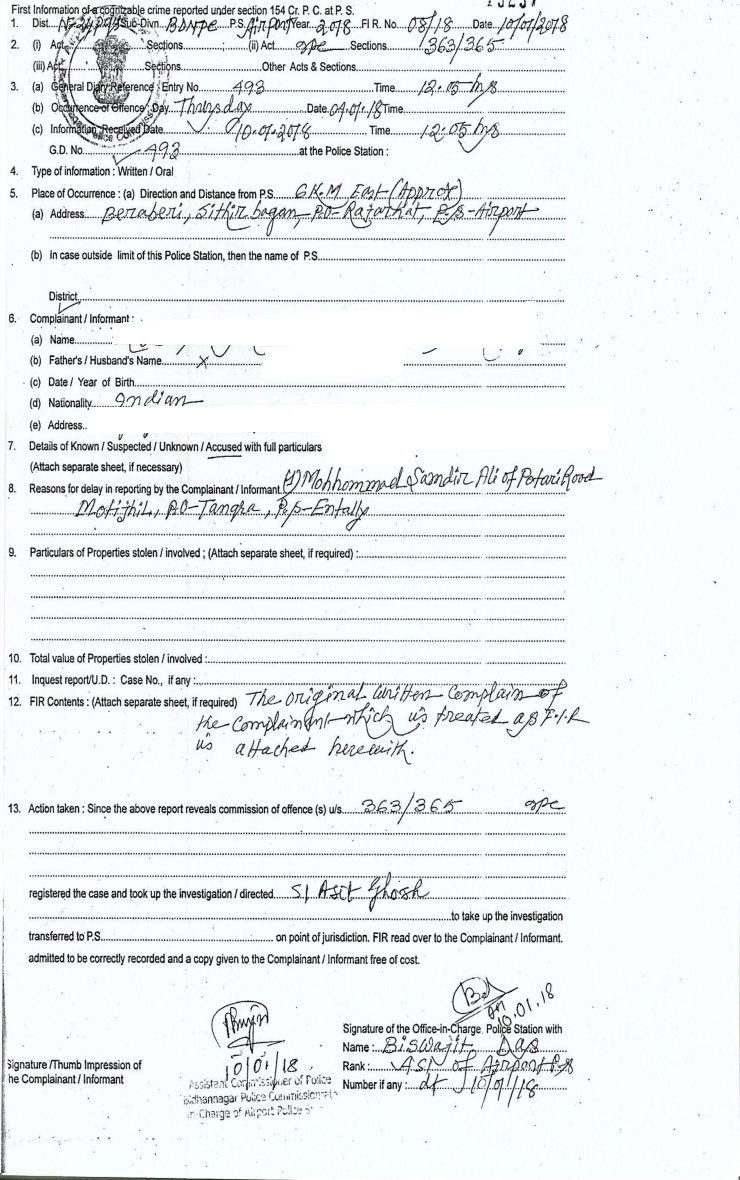 First Information of a cognizable crime reported under section 154 Cr. P. C. at P. S.
1. Dist. Sub-Divn. BDNPC P.S. Airport Year 2018 FIR. No. 08/18 Date. 10/01/2018
2. (i) Act Sections (ii) Act IPC Sections 363/365
(iii) Act Sections Other Acts & Sections
3. (a) General Diary Reference : Entry No 493 Time 12.05 hrs
(b) Occurrence of Offence/ Day Thursday Date 04.01.18 Time
(c) Information Received Date 10.01.2018 Time 12:05 hrs
G.D. No 493 at the Police Station :
4. Type of information : Written / Oral
5. Place of Occurrence : (a) Direction and Distance from P.S. 6 K.M East (Approx)
(a) Address Beraberi, Sithir bagan, P.O- Rajarhat, P/S-Airport
(b) In case outside limit of this Police Station, then the name of P.S.
District
6. Complainant / Informant :
(a) Name
(b) Father's / Husband's Name x
(c) Date / Year of Birth
(d) Nationality Indian
(e) Address..
7. Details of Known / Suspected / Unknown / Accused with full particulars
(Attach separate sheet, if necessary)
8. Reasons for delay in reporting by the Complainant / Informant Mohhommad Samdir Ali of Potari Road
Motijhil, P.O-Tangra, P/s-Entally
9. Particulars of Properties stolen / involved ; (Attach separate sheet, if required) :
10. Total value of Properties stolen / involved :
11. Inquest report/U.D. : Case No., if any :
12. FIR Contents : (Attach separate sheet, if required) The original written complain of
the complainant which is treated as F.I.R
is attached herewith.
13. Action taken : Since the above report reveals commission of offence (s) u/s 363/365 IPC
registered the case and took up the investigation / directed SI Asit Ghosh
to take up the investigation
transferred to P.S. on point of jurisdiction. FIR read over to the Complainant / Informant.
admitted to be correctly recorded and a copy given to the Complainant / Informant free of cost.
10.01.18
Signature of the Office-in-Charge, Police Station with
Name : Biswajit Das
Rank : ASI of Airport P.S
Number if any : dt 10/01/18
Signature /Thumb Impression of
the Complainant / Informant
10/01/18
Assistant Commissioner of Police
Bidhannagar Police Commissionerate
In-Charge of Airport Police